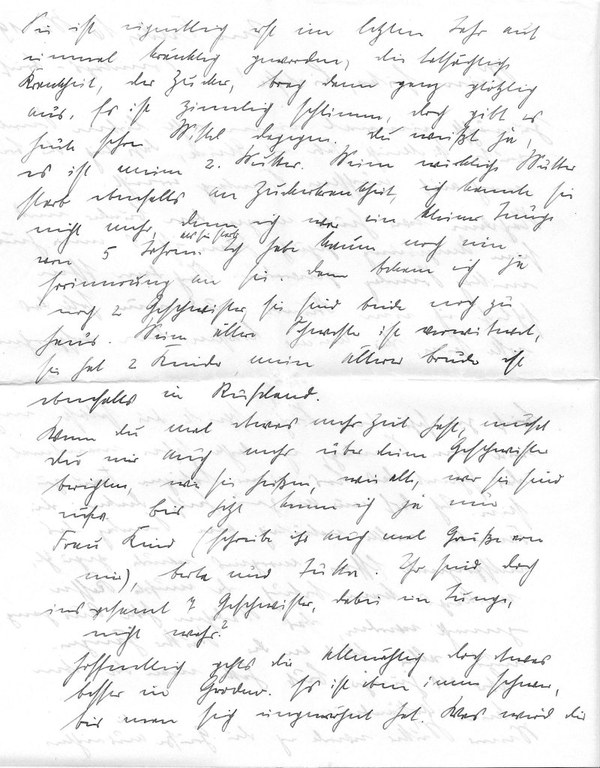 Sie ist eigentlich erst im letzten Jahr auf
einmal kränklich geworden, die tatsächliche
Krankheit, der Zucker, brach dann ganz plötzlich
aus. Es ist ziemlich schlimm, doch gibt es
heute schon Mittel dagegen. Du weißt ja,
es ist meine 2. Mutter. Meine wirkliche Mutter
starb ebenfalls an Zuckerkrankheit, ich kannte sie
nicht mehr, denn ich war ein kleiner Junge
von 5 Jahren als sie starb. Ich habe kaum noch eine
Erinnerung an sie. Dann bekam ich ja
noch 2 Geschwister, sie sind beide noch zu
Haus. Meine ältere Schwester ist verwitwet,
sie hat 2 Kinder, mein älterer Bruder ist
ebenfalls in Rußland.
Wenn du mal etwas mehr Zeit hast, mußt
du mir auch mehr über deine Geschwister
berichten, wie sie heißen, wie alt, wer sie sind
usw. Bis jetzt kenne ich ja nur
Frau Kind (schreibe ihr auch mal Grüße von
mir), Berta und Jutta. Ihr seid doch
insgesamt 7 Geschwister, dabei ein Junge,
nicht wahr?
Hoffentlich gehts dir allmählich doch etwas
besser in Grodno. Es ist eben immer schwer,
bis man sich eingewöhnt hat. Was wird die